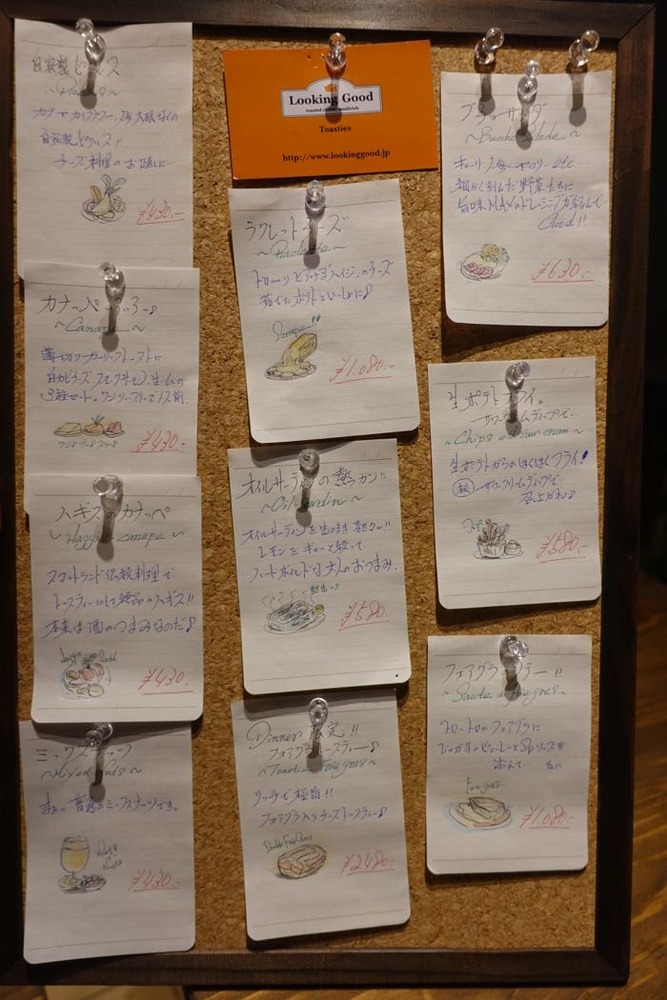 自家製ピクルス
カブやカリフラワー、
大根などの
自家製ピクルス♪
チーズ料理のお供に…
¥430.-
カナッペ
~Canape~
薄切りガーリックトーストに
白カビチーズ、スモークサーモン、生ハムの
3種セット。ワンツースリーで1人前
¥430.-
ハギスのカナッペ
~Haggis canape~
スコットランド伝統料理で
トースティーにしても絶品のハギス!!
本来は酒のつまみなのだ♪
¥430.-
ミックスナッツ
~Mixed Nuts~
昔ながらのミックスナッツです。
¥430.-
Looking Good
toasted cheese sandwich
Toasties
http://www.lookinggood.jp
ラクレットチーズ
~Raclette~
トローリととけるチーズ
茹でたポテトといっしょに♪
¥1,080.-
オイルサーディンの熱カン!!
~Oil sardin~
オイルサーディンを缶のまま熱々に!!
レモンをギュッと絞って
ハードボイルドな大人のおつまみ。
¥580.-
Dinner 限定!!
フォアグラトースティー♪
~Toastie Foie gras~
リッチで極旨!!
フォアグラ入りチーズトースティー♪
¥2,480.-
キューリ
セロリ etc…
細かく刻んだ野菜たちに
旨味MAXのドレッシング
Good!!
¥630.-
生ポテトフライ。
サワークリームディップで
~Chips with sour cream~
生ポテトからのほくほくフライ!
㊙ サワークリームディップで
召し上がれ♪
¥580.-
フォアグラソテー!!
~Saute foie gras~
トロットロのフォアグラに
ジャガイモピューレと
ソースを
添えて…
Foie gras
¥1,080.-